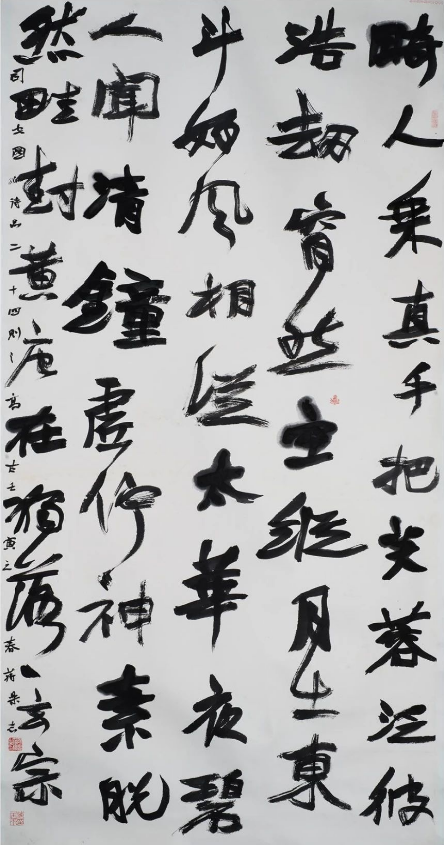 畸人乘真手把芙蓉泛彼
浩劫窅然空縱月出東
斗好風相從太華夜碧
人聞清鐘虚佇神素脱
然畦封黄唐在獨落々玄宗
司空圖诗品二十四则之高古壬寅之春蒋樂志